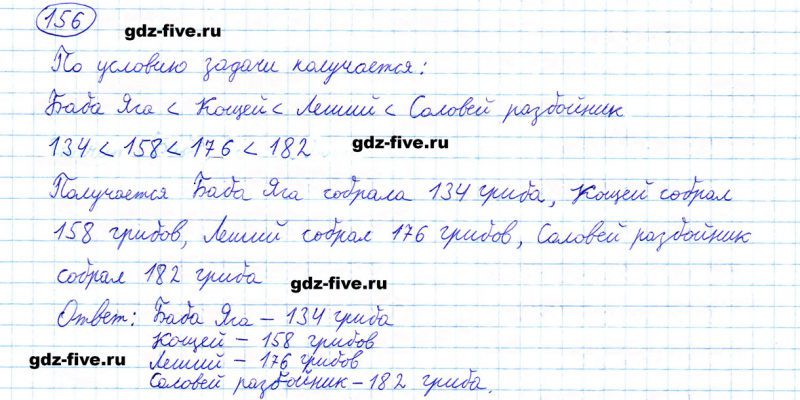 156
gdz-five.ru
По условию задачи получается:
Баба Яга < Кощей < Леший < Соловей разбойник
134 < 158 < 176 < 182
gdz-five.ru
Получается Баба Яга собрала 134 гриба, Кощей собрал
158 грибов, Леший собрал 176 грибов, Соловей разбойник
собрал 182 гриба
gdz-five.ru
Ответ: Баба Яга – 134 гриба
Кощей – 158 грибов
gdz-five.ru
Леший – 176 грибов
Соловей разбойник – 182 гриба.